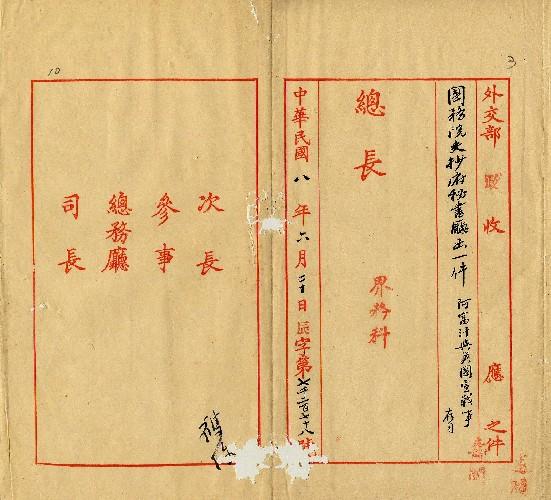 3
外交部 收 應 之件
國務院交抄府秘書廳函一件 阿富汗與英國宣戰事
總長
界務科
中華民國八年六月二十日 字第七千二百七十八號
次長
參事
總務廳
司長
10